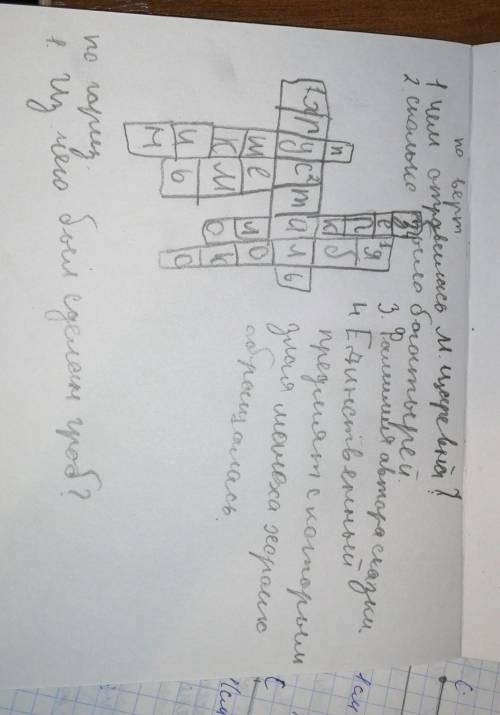 по верт
1 чем отравилась М. царевна?
2. сколько было богатырей.
3. Фамилия автора сказки.
4. Единственный
предмет с которым
злая мачеха хорошо
обращалась.
з
е
р 1 я
п к б
х р у с 2 т а л ь
ш е л о
к м о к
и ь о
н
по гориз.
1. Из чего был сделан гроб?